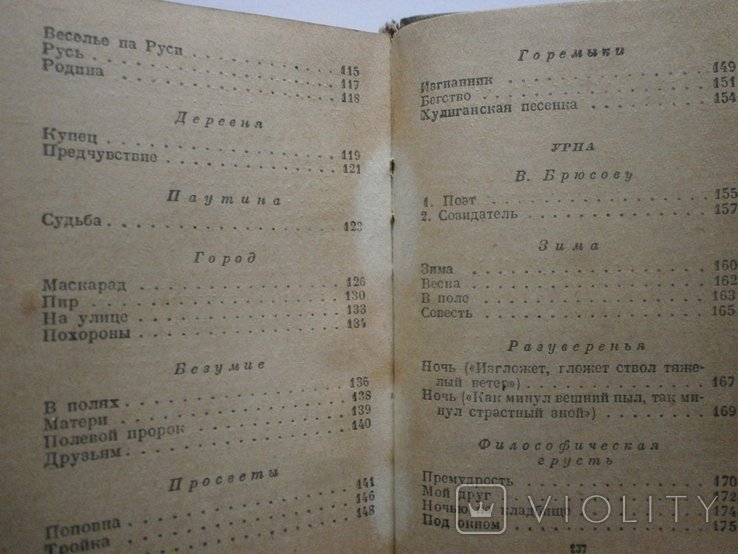 Веселье на Руси . . . 115
Русь . . . 117
Родина . . . 118
Деревня
Купец . . . 119
Предчувствие . . . 121
Паутина
Судьба . . . 123
Город
Маскарад . . . 126
Пир . . . 130
На улице . . . 133
Похороны . . . 134
Безумие
В полях . . . 136
Матери . . . 138
Полевой пророк . . . 139
Друзьям . . . 140
Просветы
Поповна . . . 141
Тройка . . . 146
148
Горемыки
Изгнанник . . . 149
Бегство . . . 151
Хулиганская песенка . . . 154
УРНА
В. Брюсову
1. Поэт . . . 155
2. Созидатель . . . 157
Зима
Зима . . . 160
Весна . . . 162
В поле . . . 163
Совесть . . . 165
Разуверенья
Ночь («Изгложет, гложет ствол тяже-
лый ветер») . . . 167
Ночь («Как минул вешний пыл, так ми-
нул страстный зной») . . . 169
Философическая
грусть
Премудрость . . . 170
Мой друг . . . 172
Ночью на кладбище . . . 174
Под окном . . . 175
237
VIOLITY